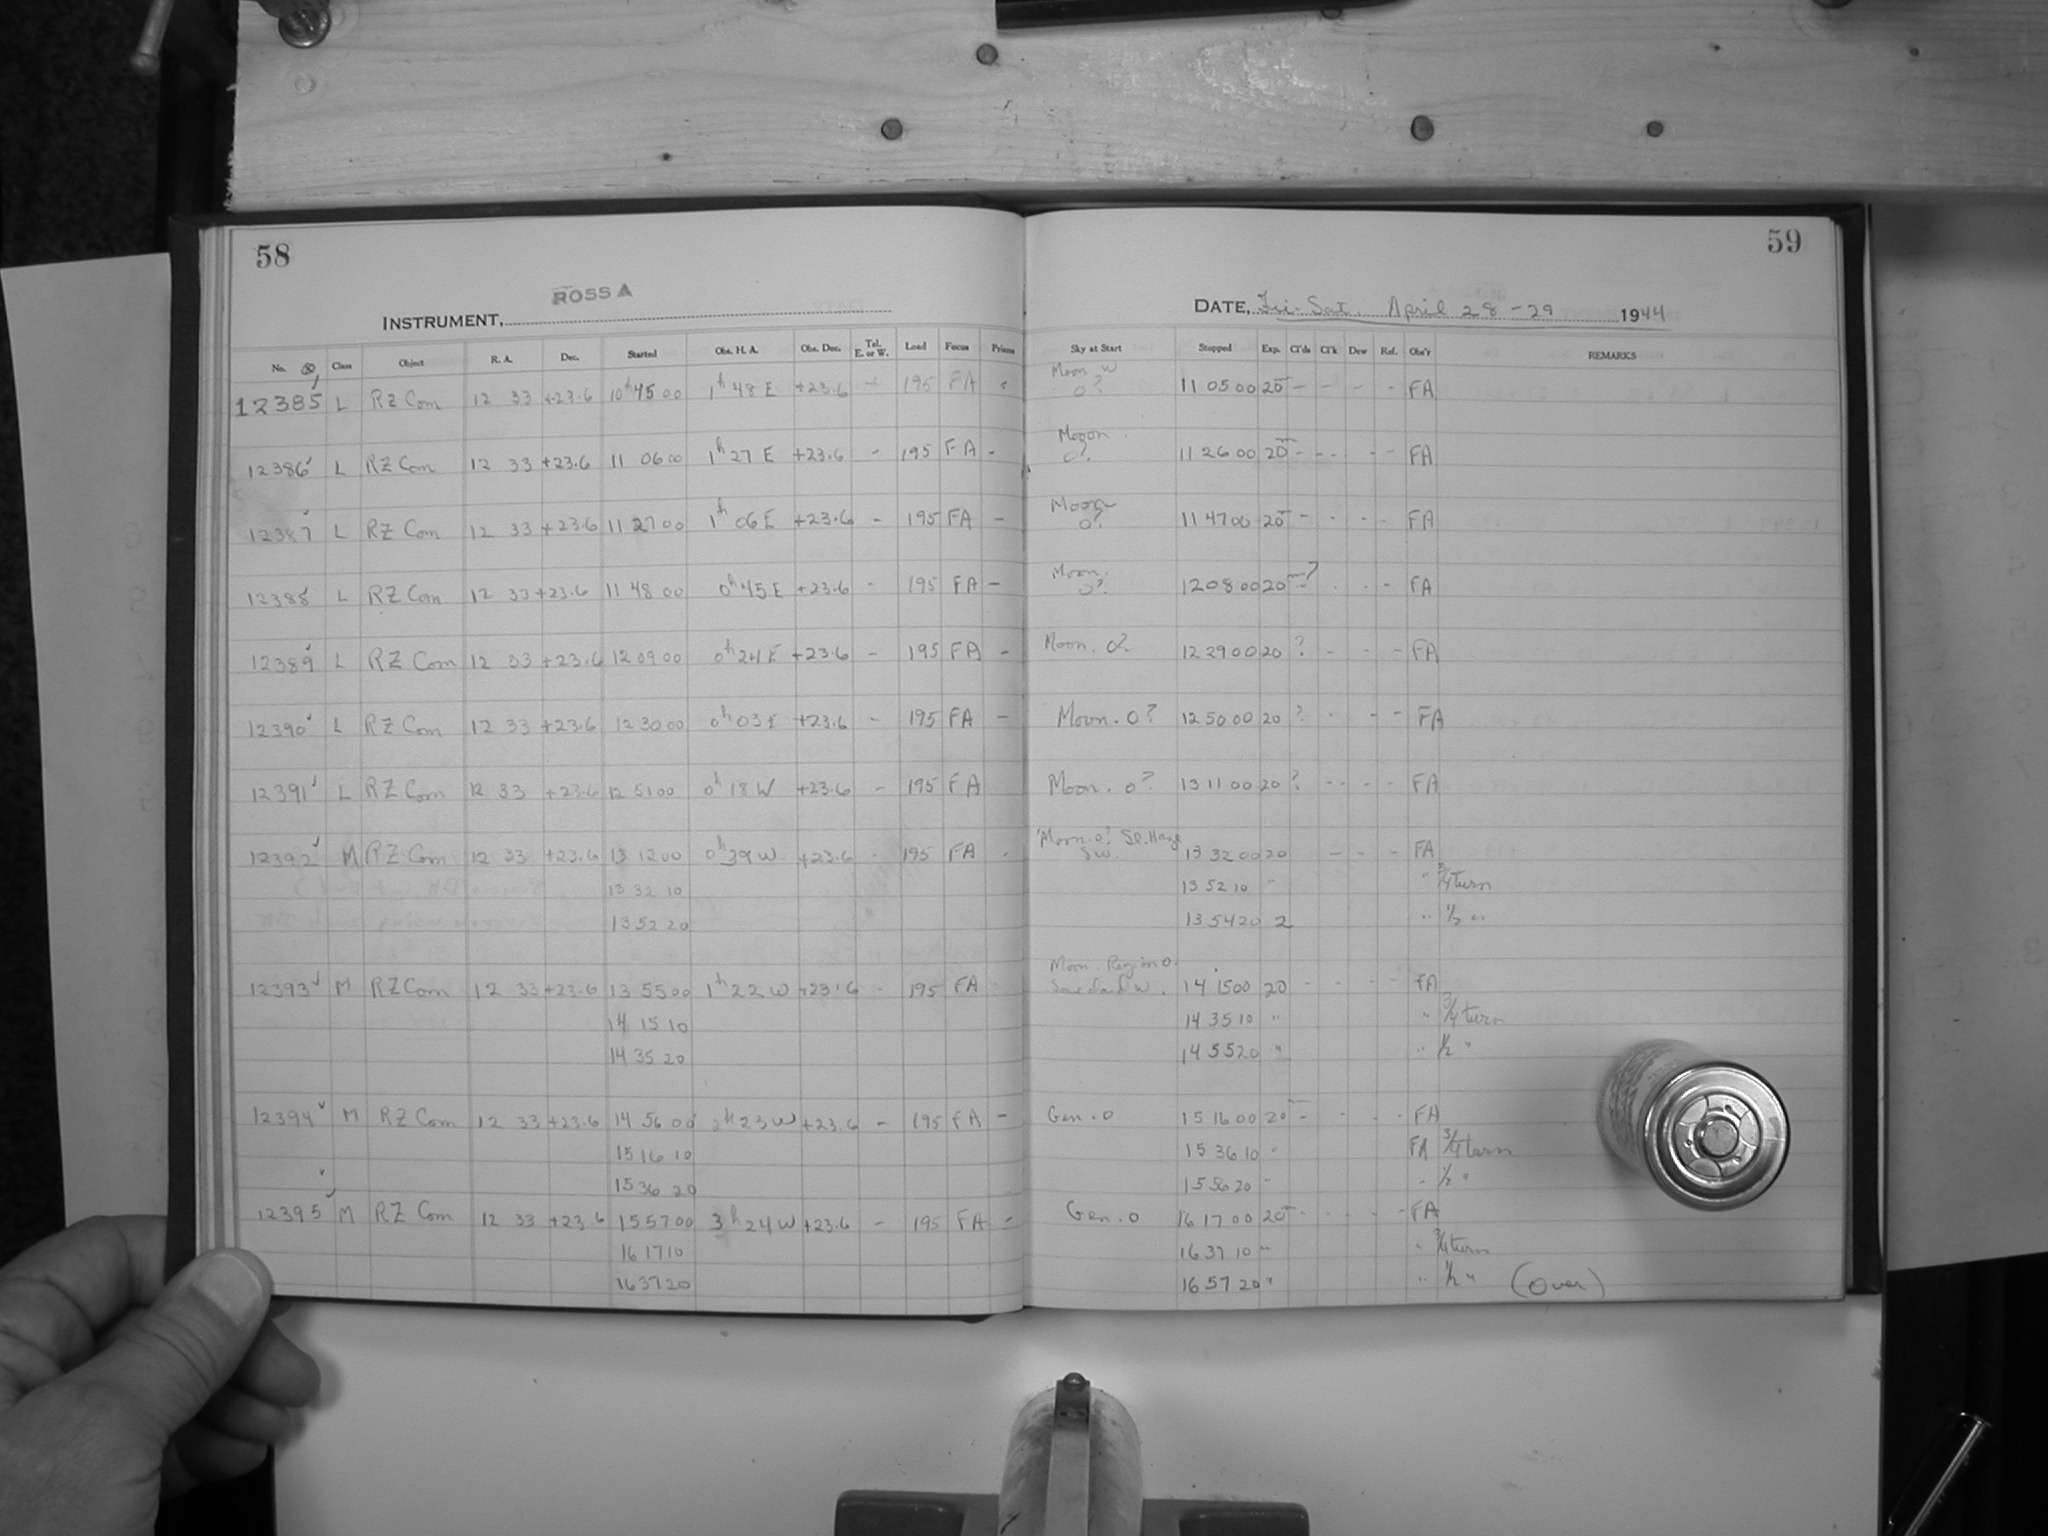 58
59
ROSS A
INSTRUMENT,
DATE, Fri-Sat. April 28-29 1944
No. Class Object R. A. Dec. Started Obs. H. A. Obs. Dec. Tel. E. or W. Load Focus Prisms Sky at Start Stopped Exp. Cl'ds Cl'k Dew Ref. Obs'r REMARKS
12385 L RZ Com 12 33 +23.6 10h 45 00 1h 48 E +23.6 - 195 FA - Moon W 0? 11 05 00 20 - - - - FA
12386 L RZ Com 12 33 +23.6 11 06 00 1h 27 E +23.6 - 195 FA - Moon. 0? 11 26 00 20 - - - - - FA
12387 L RZ Com 12 33 +23.6 11 27 00 1h 06 E +23.6 - 195 FA - Moon 0? 11 47 00 20 - - - - FA
12388 L RZ Com 12 33 +23.6 11 48 00 0h 45 E +23.6 - 195 FA - Moon. 0? 12 08 00 20 -? - - - FA
12389 L RZ Com 12 33 +23.6 12 09 00 0h 24 E +23.6 - 195 FA - Moon. 0? 12 29 00 20 ? - - - FA
12390 L RZ Com 12 33 +23.6 12 30 00 0h 03 E +23.6 - 195 FA - Moon. 0? 12 50 00 20 ? - - - FA
12391 L RZ Com 12 33 +23.6 12 51 00 0h 18 W +23.6 - 195 FA Moon. 0? 13 11 00 20 ? - - - - FA
12392 M RZ Com 12 33 +23.6 13 12 00 0h 39 W +23.6 - 195 FA - Moon. 0? Sl. Haze SW. 13 32 00 20 - - - FA
13 32 10 13 52 10 " " 3/4 turn
13 52 20 13 54 20 2 " 1/2 "
12393 M RZ Com 12 33 +23.6 13 55 00 1h 22 W +23.6 - 195 FA Moon. Region 0. W. 14 15 00 20 - - - - FA
14 15 10 14 35 10 " " 3/4 turn
14 35 20 14 55 20 " " 1/2 "
12394 M RZ Com 12 33 +23.6 14 56 00 2h 23 W +23.6 - 195 FA - Gen. 0 15 16 00 20 - - - - FA
15 16 10 15 36 10 " FA 3/4 turn
15 36 20 15 56 20 " " 1/2 "
12395 M RZ Com 12 33 +23.6 15 57 00 3h 24 W +23.6 - 195 FA - Gen. 0 16 17 00 20 - - - - FA
16 17 10 16 37 10 " " 3/4 turn
16 37 20 16 57 20 " " 1/2 " (Over)